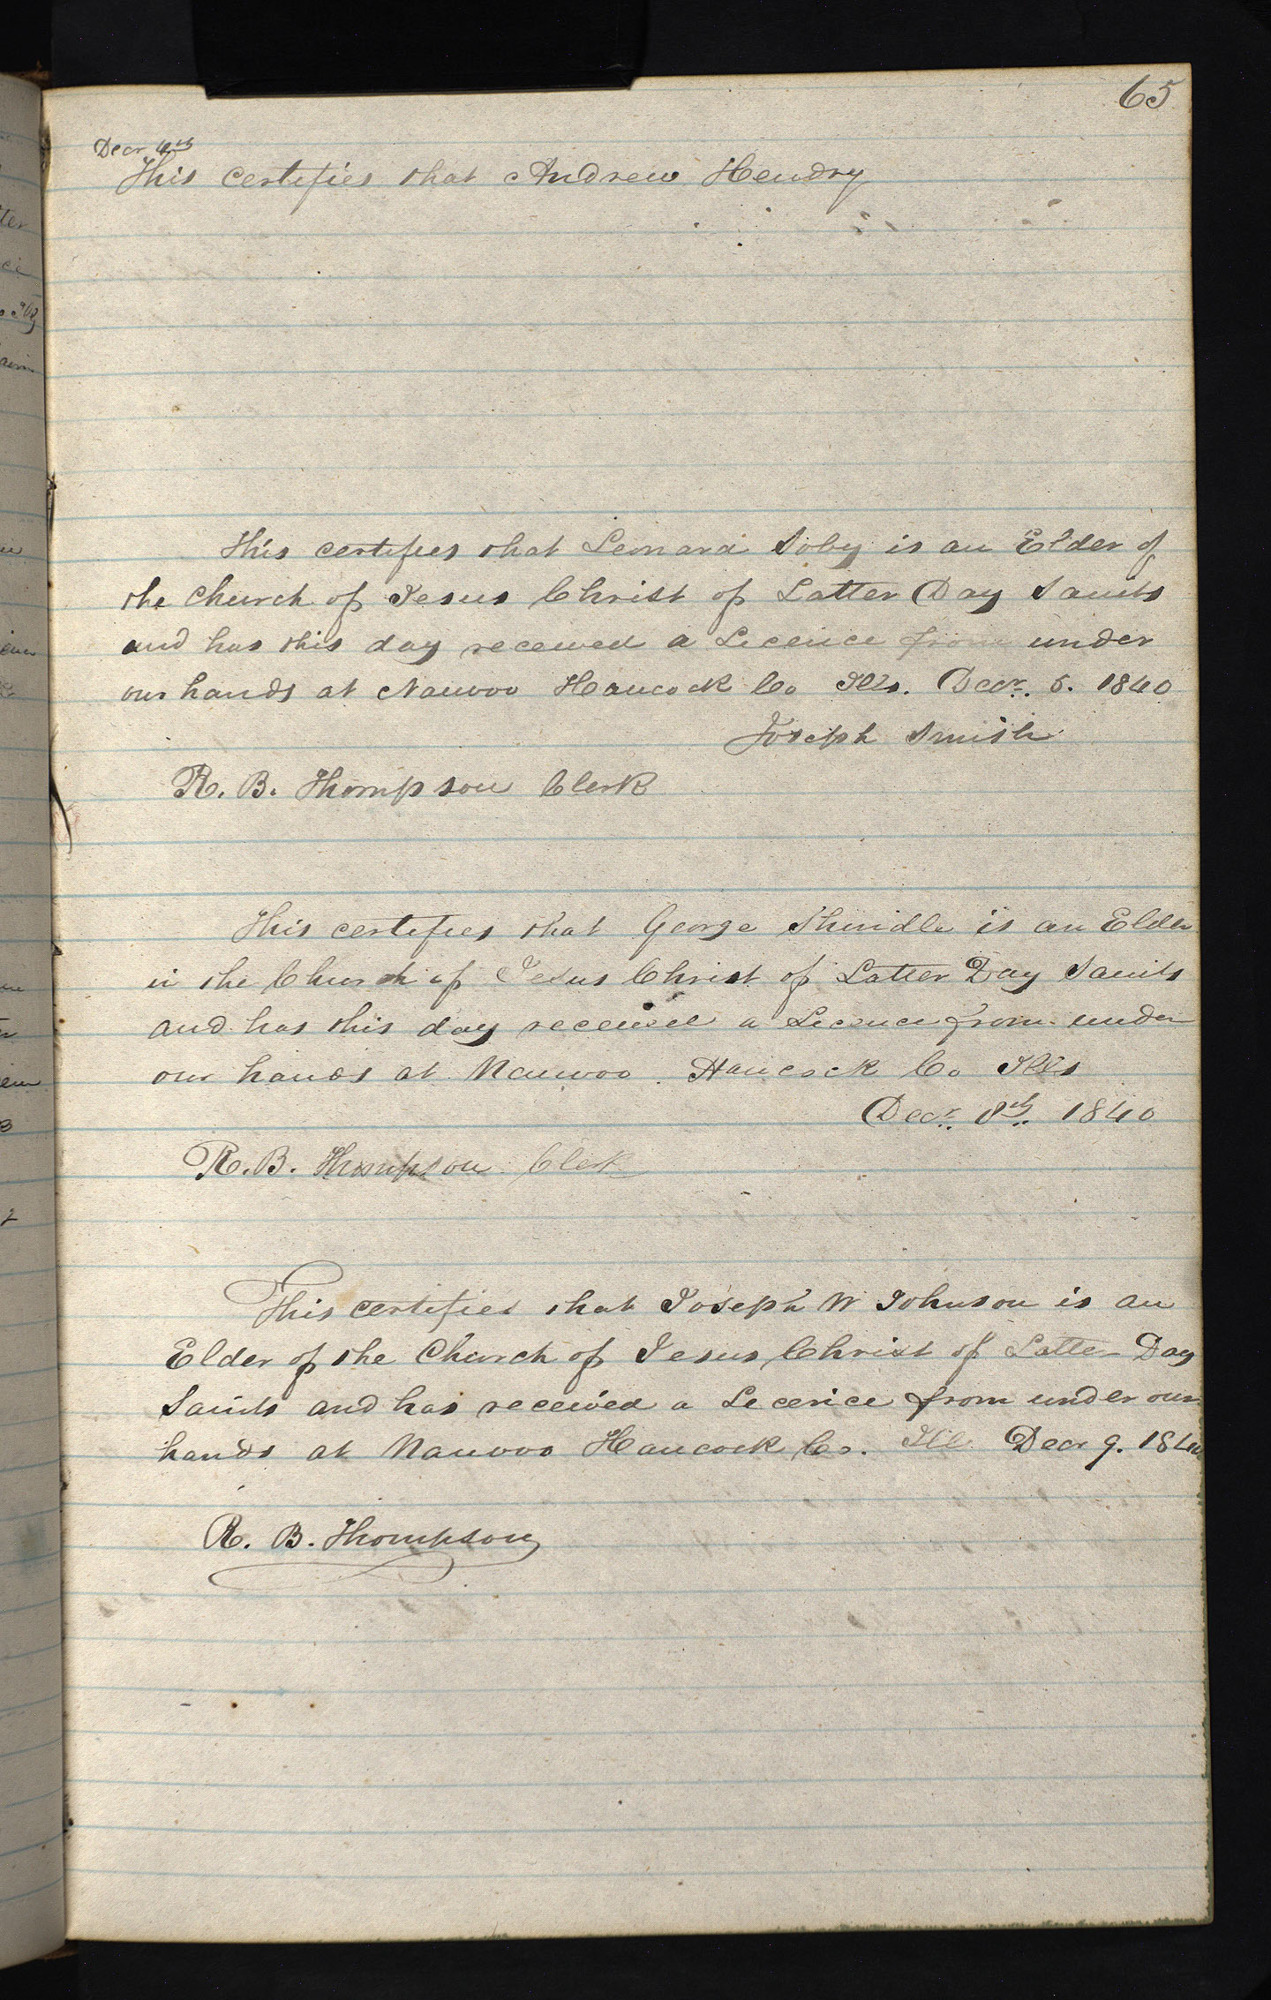 65
Decr 4th
This certifies that Andrew Hendry
This certifies that Leonard Soby is an Elder of
the Church of Jesus Christ of Latter Day Saints
and has this day received a Licence from under
our hands at Nauvoo Hancock Co Ills. Decr. 5. 1840
Joseph Smith
R. B. Thompson Clerk
This certifies that George Shindle is an Elder
in the Church of Jesus Christ of Latter Day Saints
and has this day received a Licence from under
our hands at Nauvoo. Hancock Co Ills
Decr. 8th. 1840
R. B. Thompson Clerk
This certifies that Joseph W Johnson is an
Elder of the Church of Jesus Christ of Latter Day
Saints and has received a Licence from under our
hands at Nauvoo Hancock Co. Ill. Decr 9. 1840
R. B. Thompson